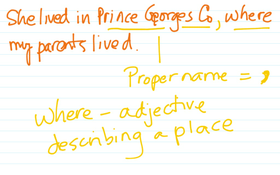 She lived in Prince Georges Co, where
my parents lived.
Proper name = ,
where - adjective
describing a place